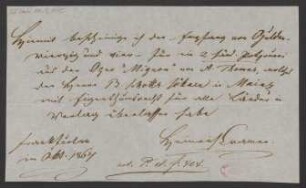 Hiermit bescheinige ich den Empfang von Gulden
vierzig und vier für ein 2 händ. Potpourri
aus der Oper "Mignon" von A. Thomas, welches
den Herren B. Schotts Söhne in Mainz
mit Eigenthumsrecht für alle Länder in
Verlag überlassen habe
Frankfurt
im Okt. 1867
Heinrich Cramer